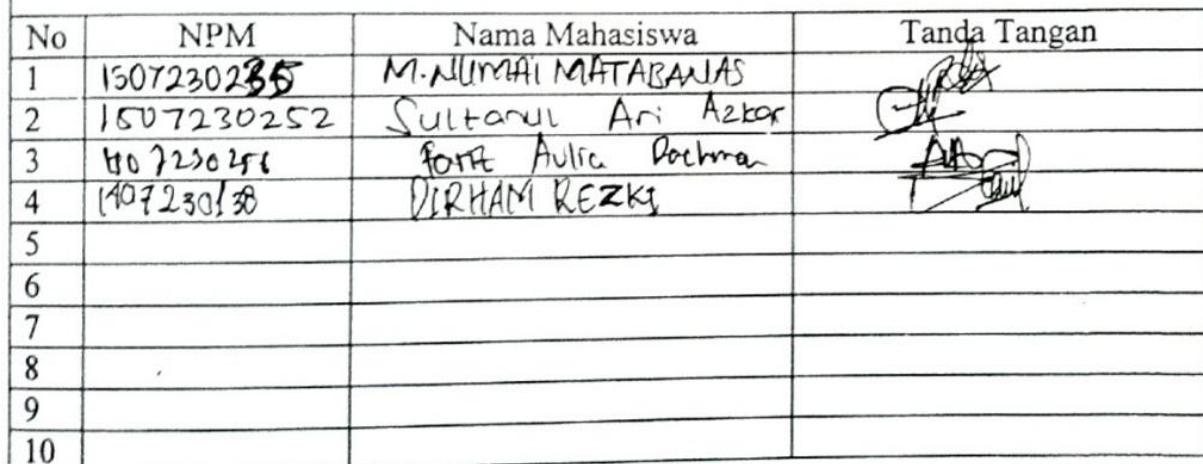 No NPM Nama Mahasiswa Tanda Tangan
1 1507230235 M. NUMAI MATABANAS
2 1507230252 Sultanul Ari Azkar
3 Aulia Rachman
4 1407230138 DIRHAM REZKI
5
6
7
8
9
10